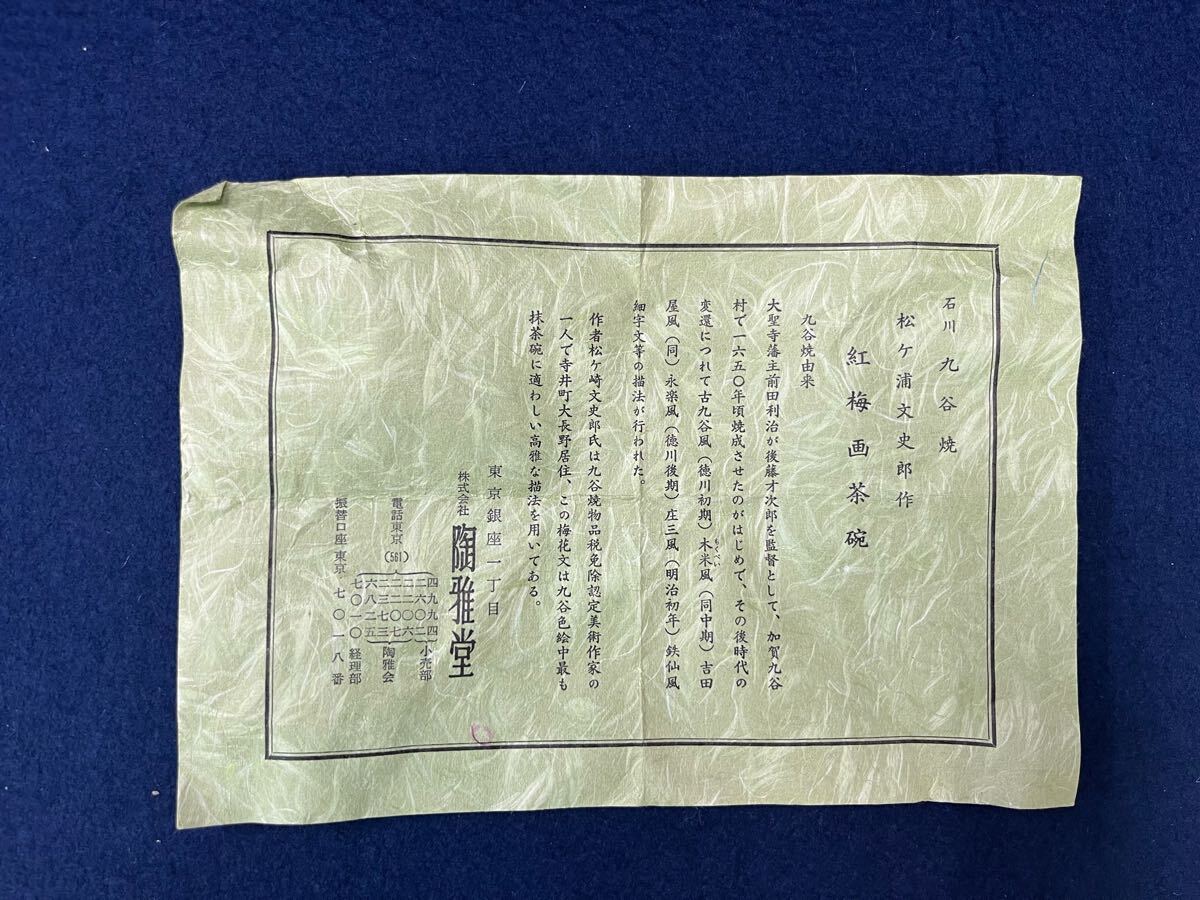 石川 九谷焼
松ケ浦文史郎作
紅梅画茶碗
九谷焼由来
大聖寺藩主前田利治が後藤才次郎を監督として、加賀九谷
村で一六五〇年頃焼成させたのがはじめて、その後時代の
変還につれて古九谷風(徳川初期)木米風(同中期)吉田
もくべい
屋風(同)永楽風(徳川後期)庄三風(明治初年)鉄仙風
細字文等の描法が行われた。
作者松ケ崎文史郎氏は九谷焼物品税免除認定美術作家の
一人で寺井町大長野居住、この梅花文は九谷色絵中最も
抹茶碗に適わしい高雅な描法を用いてある。
東京銀座一丁目
株式会社 陶雅堂
電話東京(561)
四九九四
二六〇二 小売部
二二〇七
二三七三 陶雅会
六八二五
七〇一〇 経理部
振替口座 東京 七〇一八番